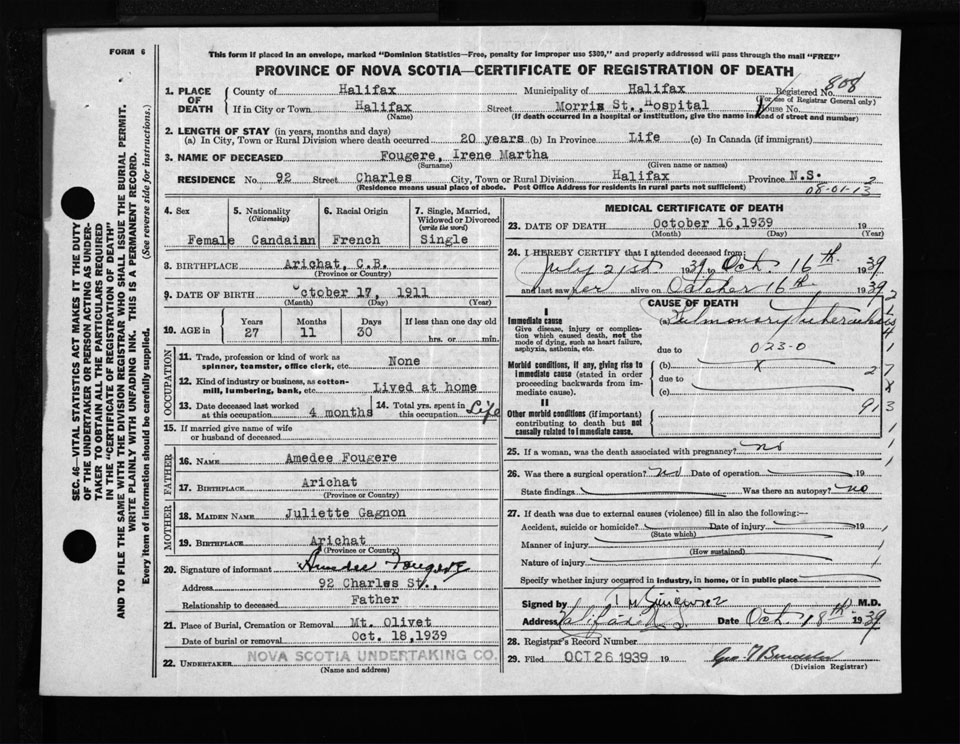 FORM 6
This form if placed in an envelope, marked "Dominion Statistics—Free, penalty for improper use $300," and properly addressed will pass through the mail "FREE"
PROVINCE OF NOVA SCOTIA—CERTIFICATE OF REGISTRATION OF DEATH
1. PLACE OF DEATH County of Halifax Municipality of Halifax Registered No. 808
(For use of Registrar General only)
If in City or Town Halifax Street Morris St., Hospital House No.
(Name) (If death occurred in a hospital or institution, give the name instead of street and number)
2. LENGTH OF STAY (in years, months and days)
(a) In City, Town or Rural Division where death occurred 20 years (b) In Province Life (c) In Canada (if immigrant)
3. NAME OF DECEASED Fougere, Irene Martha
(Surname) (Given name or names)
RESIDENCE No. 92 Street Charles City, Town or Rural Division Halifax Province N.S.
(Residence means usual place of abode. Post Office Address for residents in rural parts not sufficient)
08-01-13 2
4. Sex Female
5. Nationality (Citizenship) Candaian
6. Racial Origin French
7. Single, Married, Widowed or Divorced (write the word) Single
8. BIRTHPLACE Arichat, C.B.
(Province or Country)
9. DATE OF BIRTH October 17, 1911
(Month) (Day) (Year)
10. AGE in Years 27 Months 11 Days 30 If less than one day old hrs. or min.
OCCUPATION
11. Trade, profession or kind of work as spinner, teamster, office clerk, etc. None
12. Kind of industry or business, as cotton-mill, lumbering, bank, etc. Lived at home
13. Date deceased last worked at this occupation 4 months
14. Total yrs. spent in this occupation Life
15. If married give name of wife or husband of deceased
FATHER
16. NAME Amedee Fougere
17. BIRTHPLACE Arichat
(Province or Country)
MOTHER
18. MAIDEN NAME Juliette Gagnon
19. BIRTHPLACE Arichat
(Province or Country)
20. Signature of informant Amedee Fougere
Address 92 Charles St.,
Relationship to deceased Father
21. Place of Burial, Cremation or Removal Mt. Olivet
Date of burial or removal Oct. 18, 1939
22. UNDERTAKER NOVA SCOTIA UNDERTAKING CO.
(Name and address)
MEDICAL CERTIFICATE OF DEATH
23. DATE OF DEATH October 16, 1939 19
(Month) (Day) (Year)
24. I HEREBY CERTIFY that I attended deceased from:
July 21st 1939 to Oct. 16th 1939
and last saw her alive on October 16th 1939
CAUSE OF DEATH
I
Immediate cause
Give disease, injury or complication which caused death, not the mode of dying, such as heart failure, asphyxia, asthenia, etc.
(a) Pulmonary tuberculosis
due to 023-0
Morbid conditions, if any, giving rise to immediate cause (stated in order proceeding backwards from immediate cause).
(b) x
due to
(c)
II
Other morbid conditions (if important) contributing to death but not causally related to immediate cause.
913
25. If a woman, was the death associated with pregnancy? no
26. Was there a surgical operation? no Date of operation 19
State findings Was there an autopsy? no
27. If death was due to external causes (violence) fill in also the following:—
Accident, suicide or homicide? Date of injury 19
(State which)
Manner of injury
(How sustained)
Nature of injury
Specify whether injury occurred in industry, in home, or in public place
Signed by M.D.
Address Halifax N.S. Date Oct. 18th 1939
28. Registrar's Record Number
29. Filed OCT 26 1939 19
(Division Registrar)
SEC. 46—VITAL STATISTICS ACT MAKES IT THE DUTY
OF THE UNDERTAKER OR PERSON ACTING AS UNDER-
TAKER TO OBTAIN ALL THE PARTICULARS REQUIRED
IN THE "CERTIFICATE OF REGISTRATION OF DEATH"
AND TO FILE THE SAME WITH THE DIVISION REGISTRAR WHO SHALL ISSUE THE BURIAL PERMIT.
WRITE PLAINLY WITH UNFADING INK. THIS IS A PERMANENT RECORD.
Every item of information should be carefully supplied. (See reverse side for instructions.)